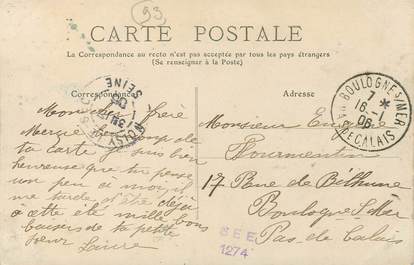 93
CARTE POSTALE
La Correspondance au recto n'est pas acceptée par tous les pays étrangers
(Se renseigner à la Poste)
Correspondance
Adresse
BOULOGNE S/MER
7 *
16 - 1
06
PAS DE CALAIS
SEINE
Mon petit frère
Merci
ta carte je suis bien
heureuse que tu penses
un peu à moi, il
me tarde d'être déjà
à cette été mille bons
baisers de ta petite
sœur Laure
Monsieur
Fourmentin
17 Rue de Béthune
Boulogne s/Mer
Pas de Calais
S E E
1274